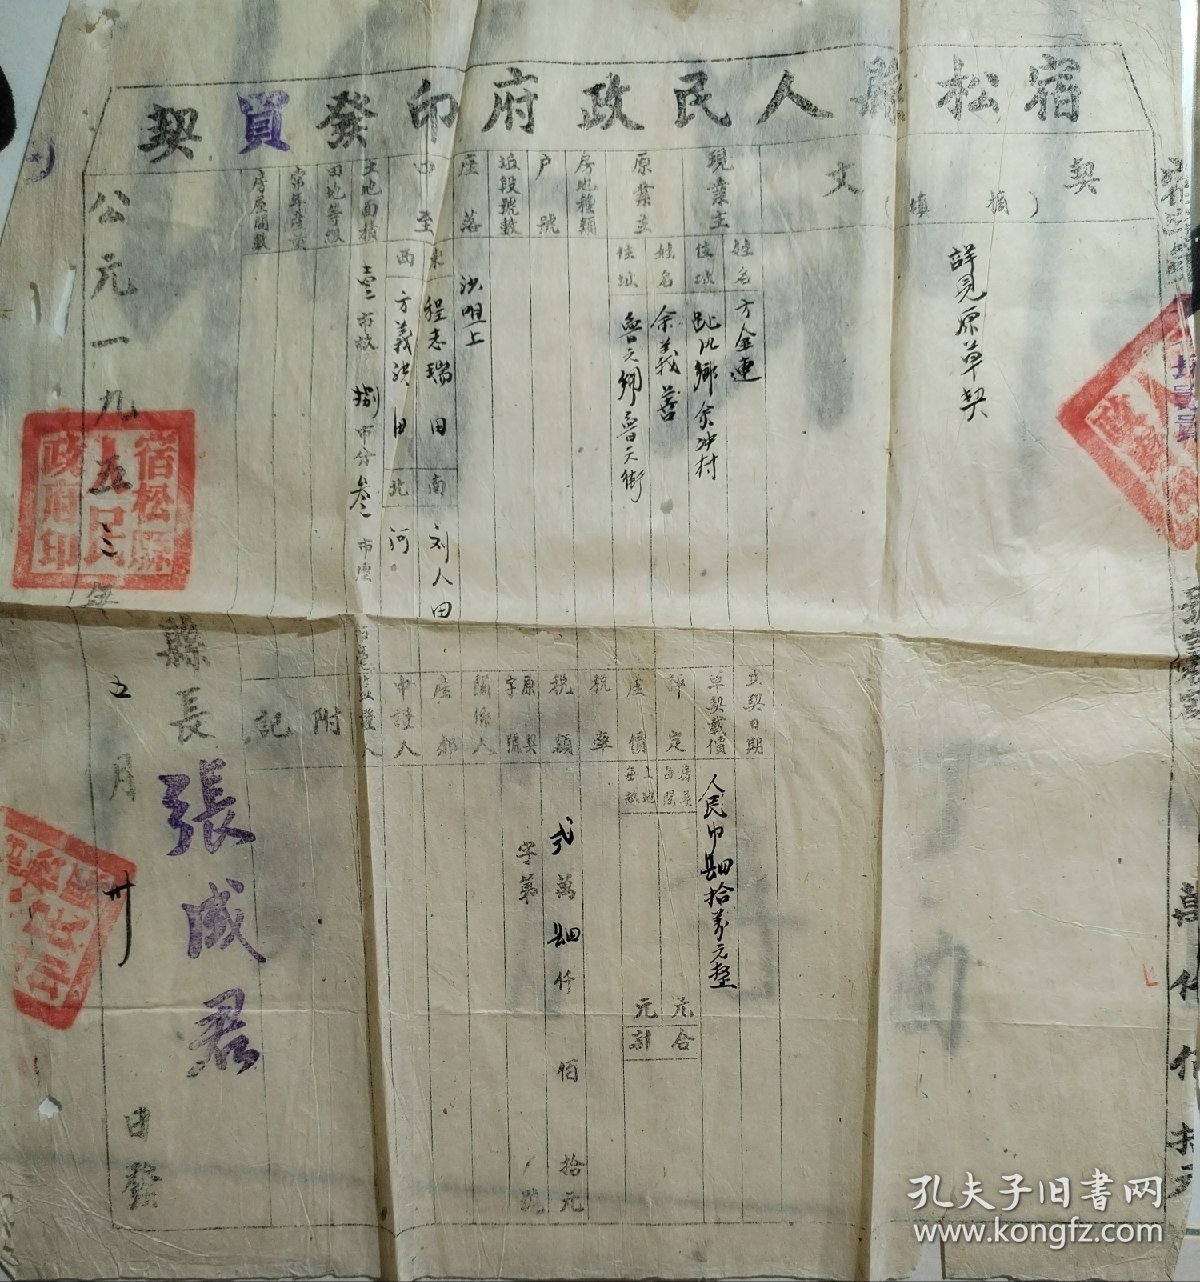 宿松縣人民政府印發買契
契文（摘填）
詳見原草契
現業主
姓名 方金連
住址 趾鄉余冲村
原業主
姓名 余義善
住址 魯元街
房地種類
戶號
地段號數
座落 沙咀上
四至
東 程志瑞田
南 刘人田
西 方義田
北 河
土地面積 壹市畝捌市分叁市厘
田地等級
常年產量
房屋間數
立契日期
草契載價 人民币肆拾万元整
評定產價
房屋每間 元合
土地每畝 元計
稅率
稅額 弍萬肆仟 佰 拾元
原契字號 字第 號
關係人
產鄰
中證人
附記
公元一九五三年五月卅日發
縣長 張成君
宿松縣人民政府印
孔夫子旧书网
www.kongfz.com